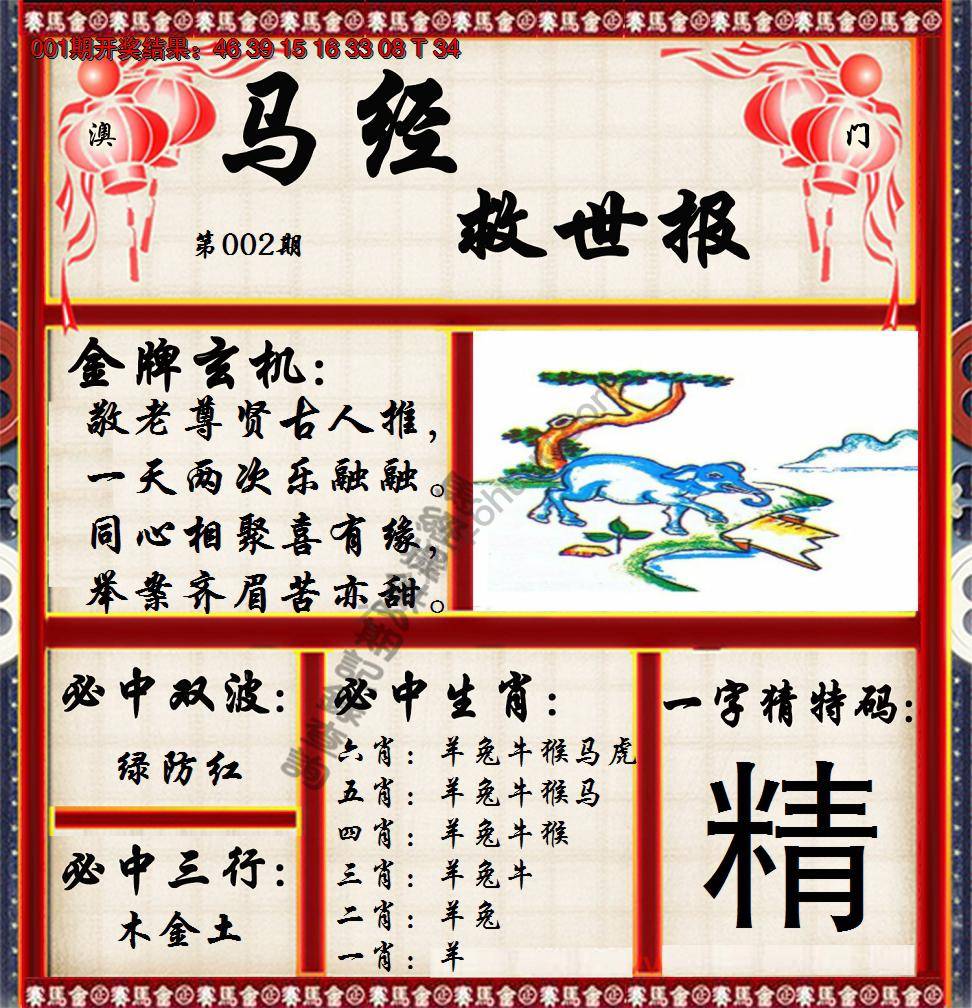 001期开奖结果：46 39 15 16 33 08 T 34
澳
门
马经
救世报
第002期
金牌玄机：
敬老尊贤古人推，
一天两次乐融融。
同心相聚喜有缘，
举案齐眉苦亦甜。
必中双波：
绿防红
必中三行：
木金土
必中生肖：
六肖：羊兔牛猴马虎
五肖：羊兔牛猴马
四肖：羊兔牛猴
三肖：羊兔牛
二肖：羊兔
一肖：羊
一字猜特码：
精